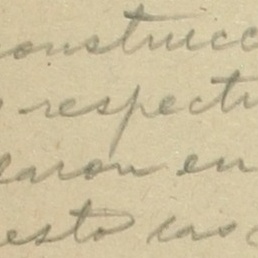 construcc
respectu
laron en
esto las